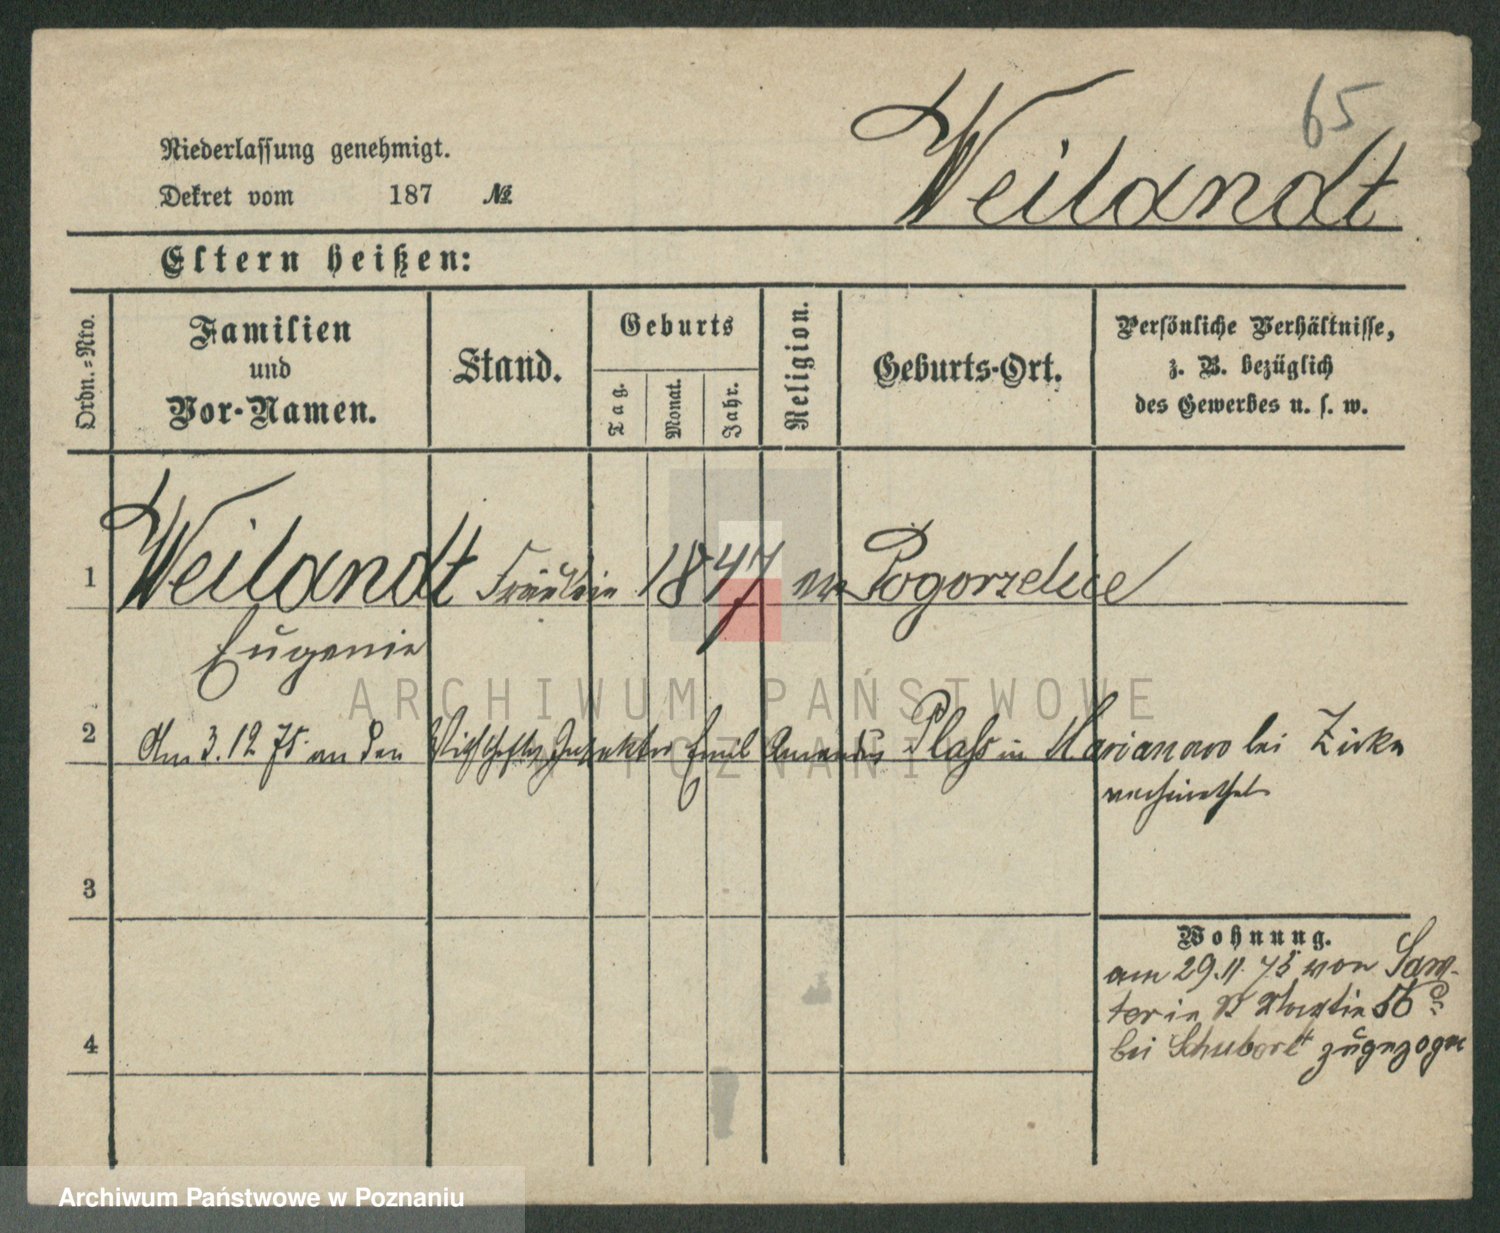 65
Weilandt
Niederlassung genehmigt.
Dekret vom 187 №
Eltern heißen:
Ordn.-Nro.
Familien
und
Vor-Namen.
Stand.
Geburts
Tag.
Monat.
Jahr.
Religion.
Geburts-Ort.
Persönliche Verhältnisse,
z. B. bezüglich
des Gewerbes u. s. w.
1 Weilandt Fräulein 1847 ev Pogorzelice
Eugenie
ARCHIWUM PAŃSTWOWE
2 Am 3.12 75. an den Wirthschafts Inspektor Emil Amandus Plass in Marianowo bei Zirke
W POZNANIU
verheirathet
3
Wohnung.
am 29.11. 75 von Sam-
ter in St Martin 56
4
bei Schubert zugezogen
Archiwum Państwowe w Poznaniu